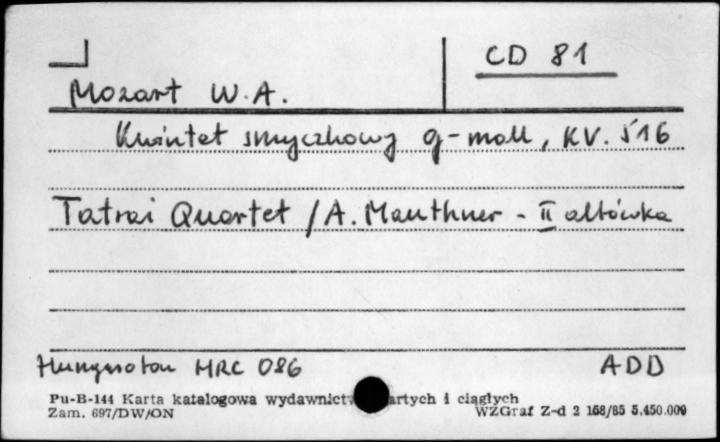 CD 81
Mozart W.A.
Kwintet smyczkowy g-moll, KV. 516
Tatrai Quartet / A. Mauthner - II altówka
Hungaroton HRC 086
ADD
Pu-B-144 Karta katalogowa wydawnictw artych i ciągłych
Zam. 697/DW/ON
WZGraf Z-d 2 168/85 5.450.000